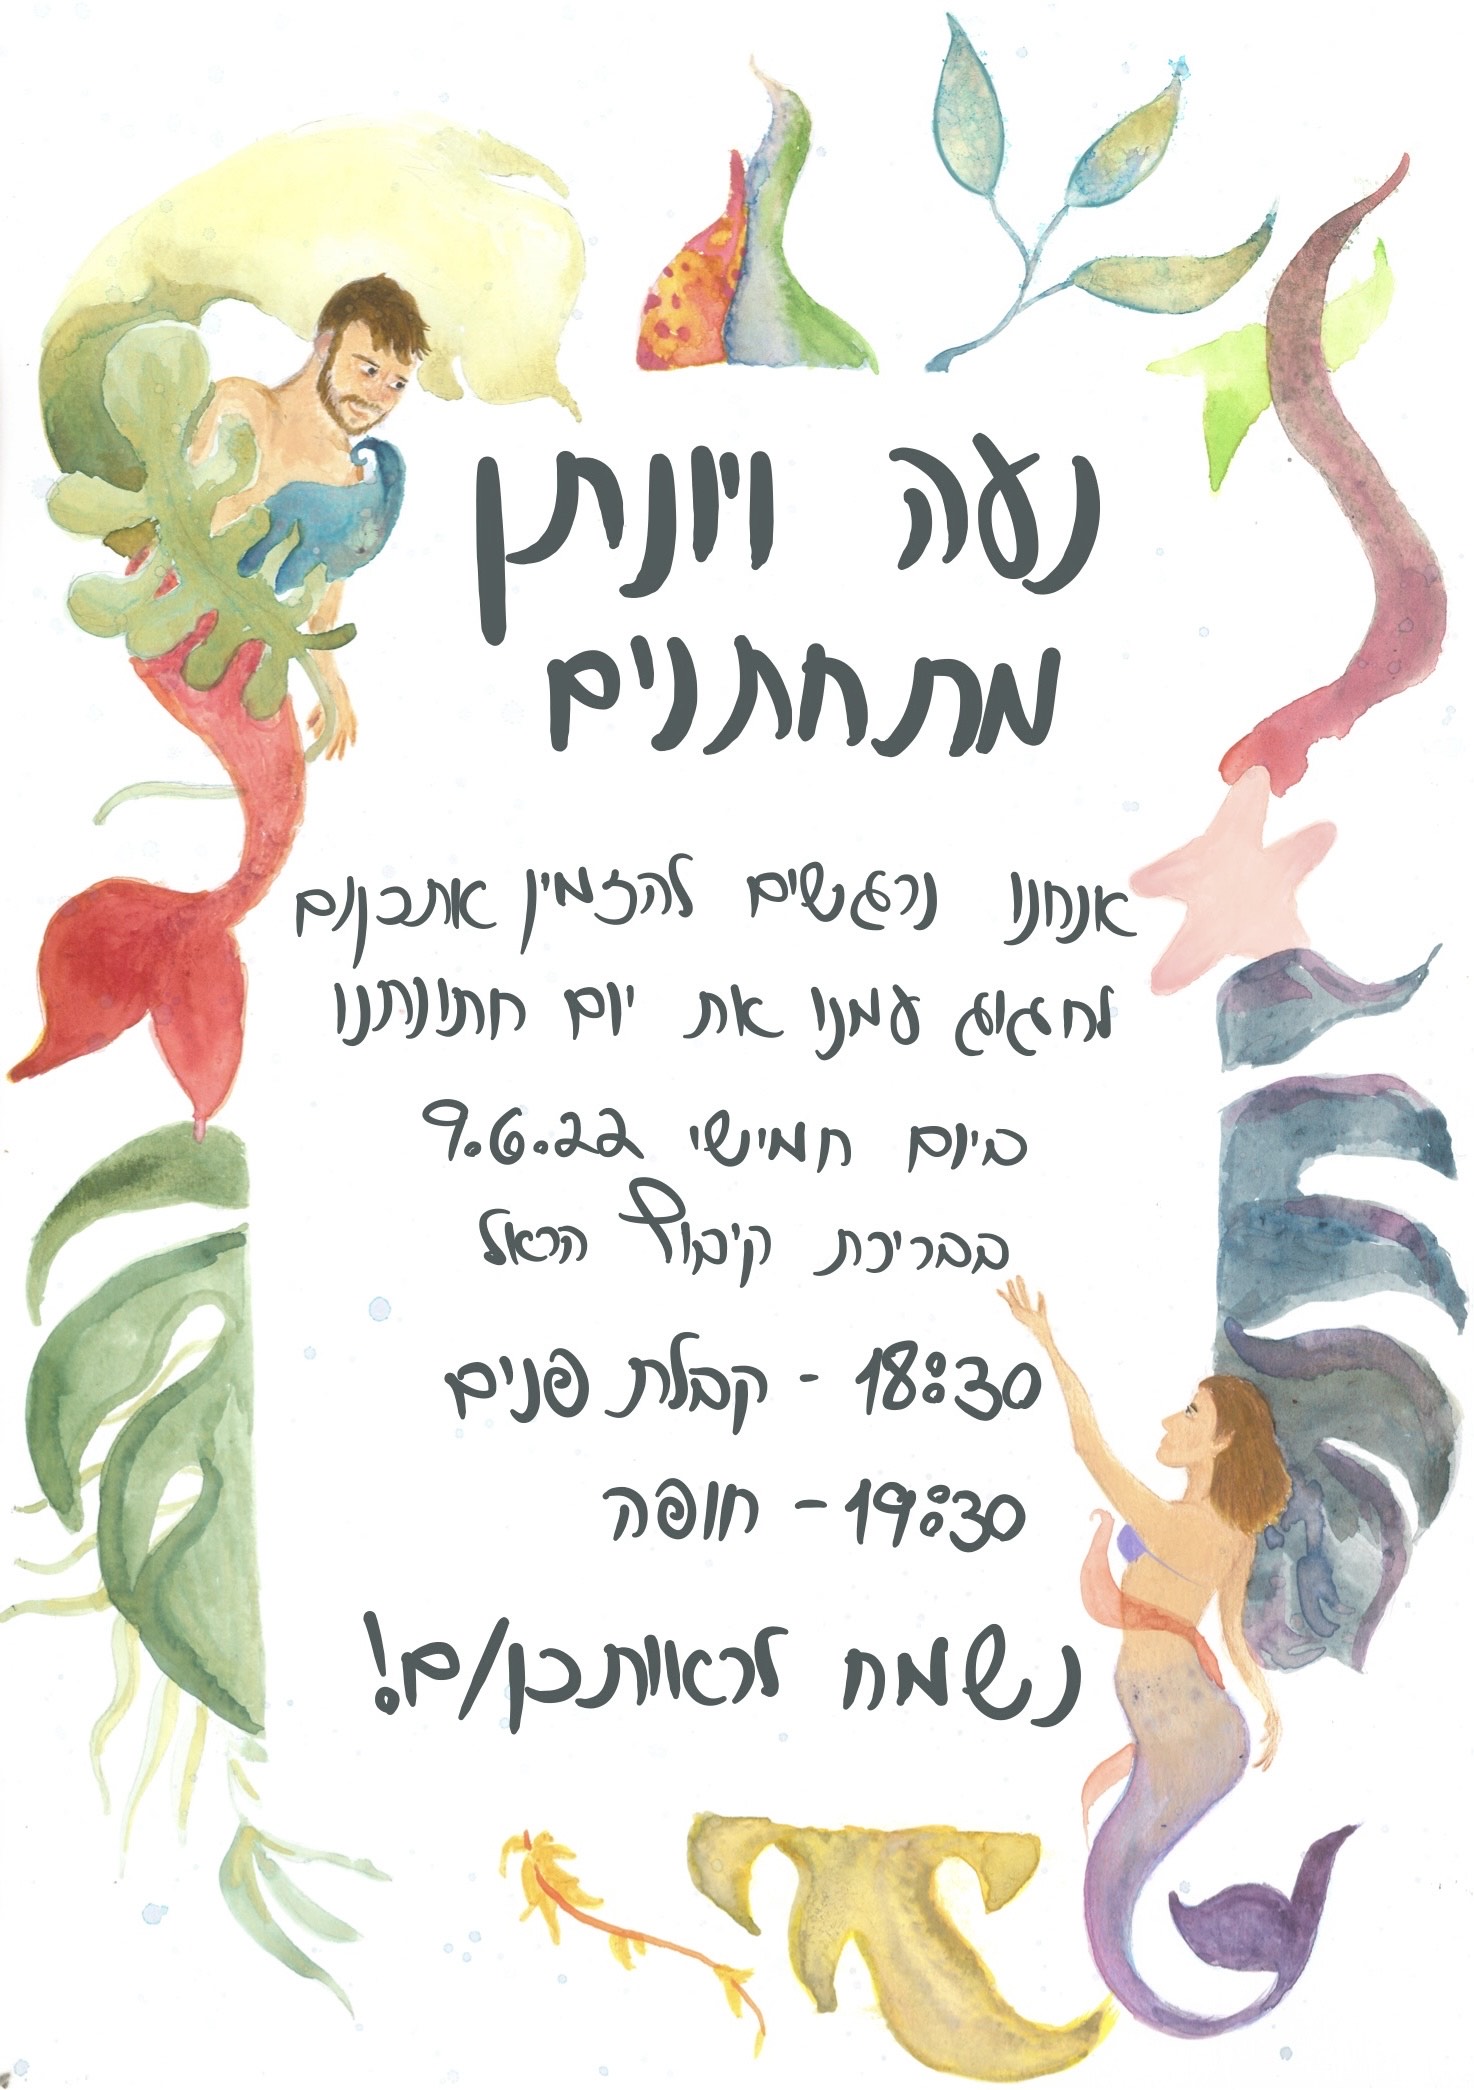 נעה ויונתן
מתחתנים
אנחנו נרגשים להזמין אתכן/ם
לחגוג עמנו את יום חתונתנו
ביום חמישי 9.6.22
בבריכת קיבוץ הראל
18:30 - קבלת פנים
19:30 - חופה
נשמח לראותכן/ם!